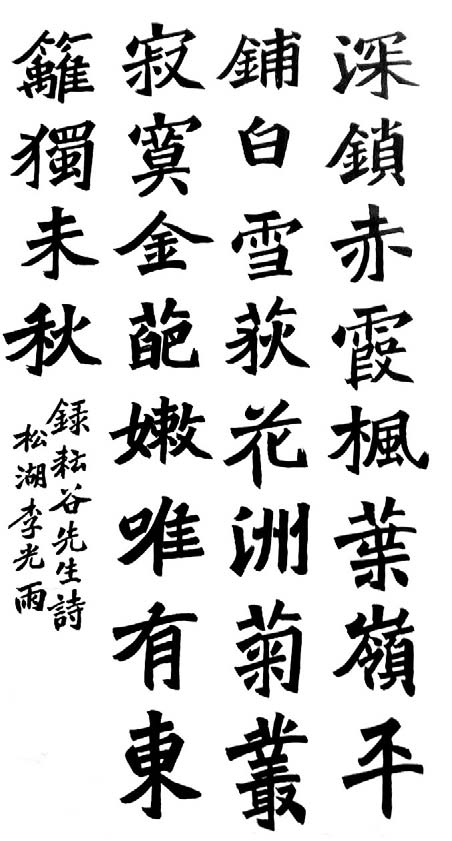 深鎖赤霞楓葉嶺平
鋪白雪荻花洲菊叢
寂寞金葩嫩唯有東
籬獨未秋
錄耘谷先生詩
松湖李光雨